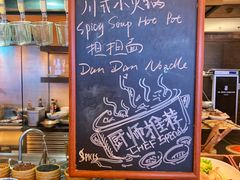 川式小火锅
Spicy Soup Hot Pot
担担面
Dan Dan Noodle
厨师推荐
CHEF
SPICES